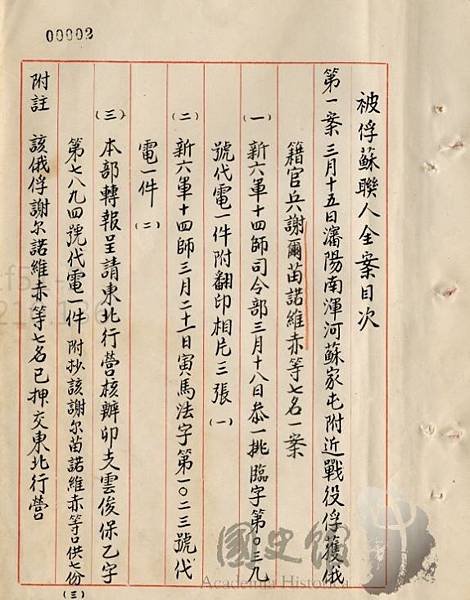 00002
被俘蘇聯人全案目次
第一案 三月十五日瀋陽南渾河蘇家屯附近戰役俘獲俄
籍官兵謝爾苗諾維赤等七名一案
(一) 新六軍十四師司令部三月十八日恭一挑臨字第〇三九
號代電一件附翻印相片三張 (一)
(二) 新六軍十四師三月二十一日寅馬法字第一〇二三號代
電一件 (二)
(三) 本部轉報呈請東北行營核辦卯支雲俊保乙字
第七八九四號代電一件 附抄該謝尔苗諾維赤等口供七份 (三)
附註 該俄俘謝尔諾維赤等七名已押交東北行營
國史館
Academia Historica